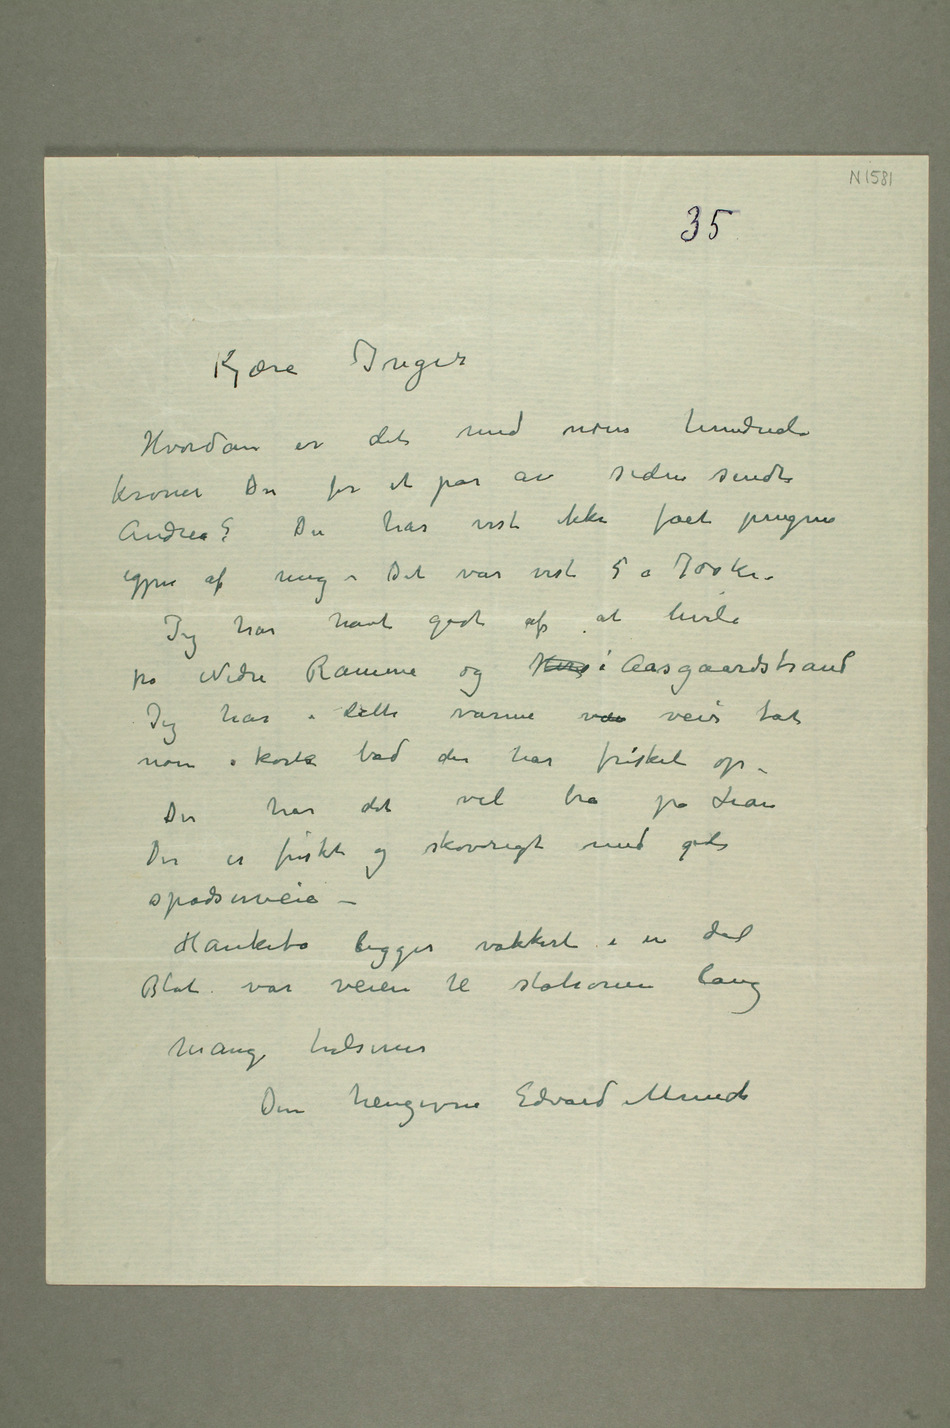 N 1581
35
Kjære Inger
Hvordan er det med noen hundrede
kroner Du for et par år siden sendte
Andrea? Du har vist ikke fået pengene
igjen af meg – Det var vist 5 a 700 kr.
Jeg har havt godt af at hvile
på Nedre Ramme og i Aasgaardstrand
Jeg har i dette varme veir tat
noen korte bad der har frisket op –
Du har det vel bra på Lian
Der er friskt og skovrigt med gode
spadserveie –
Hankebo ligger vakkert i en dal
Blot var veien til stationen lang
Mange hilsener
Din hengivne Edvard Munch